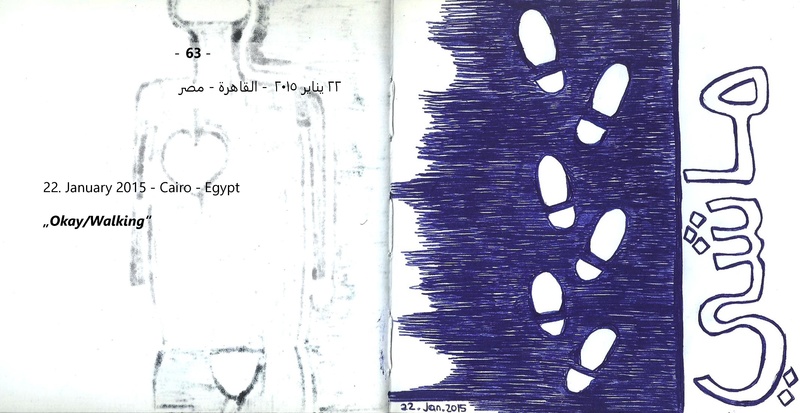 - 63 -
٢٢ يناير ٢٠١٥ - القاهرة - مصر
22. January 2015 - Cairo - Egypt
„Okay/Walking“
ماشي
22.Jan.2015